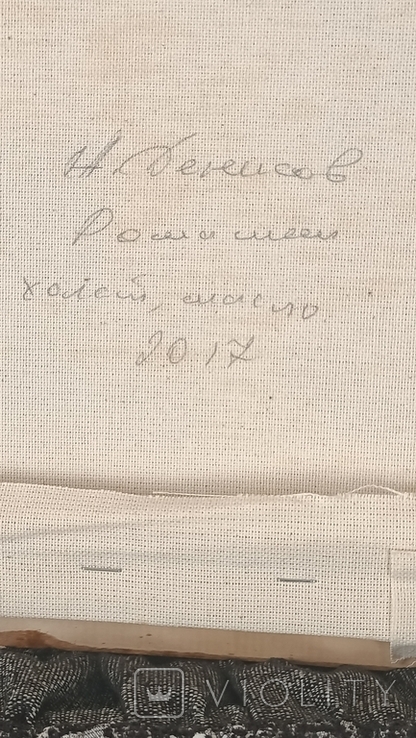 Н. Денисов
Ромашки
холст, масло
2017
VIOLITY